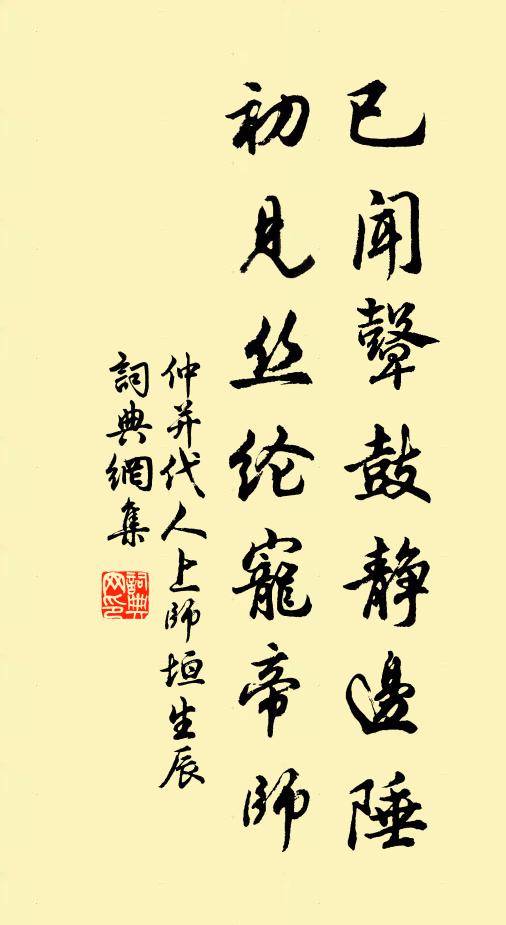 已闻鼙鼓静邊陲
初見丝纶寵帝師
仲并代人上師垣生辰
詞典網集
詞典网印